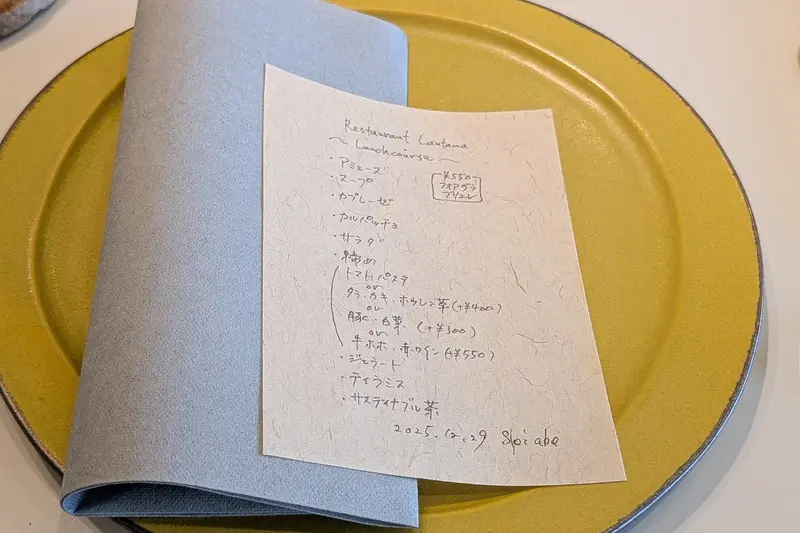 Restaurant Lantana
～ Lunchcourse ～
・アミューズ
・スープ
・カプレーゼ
・カルパッチョ
・サラダ
・締め
トマトパスタ
or
タラ・カキ・ホウレン草(+¥400)
or
豚・白菜 (+¥300)
or
牛ホホ・赤ワイン(+¥550)
・ジェラート
・ティラミス
・サスティナブル茶
2025.12.29
¥550-
フォアグラ
ブリュレ